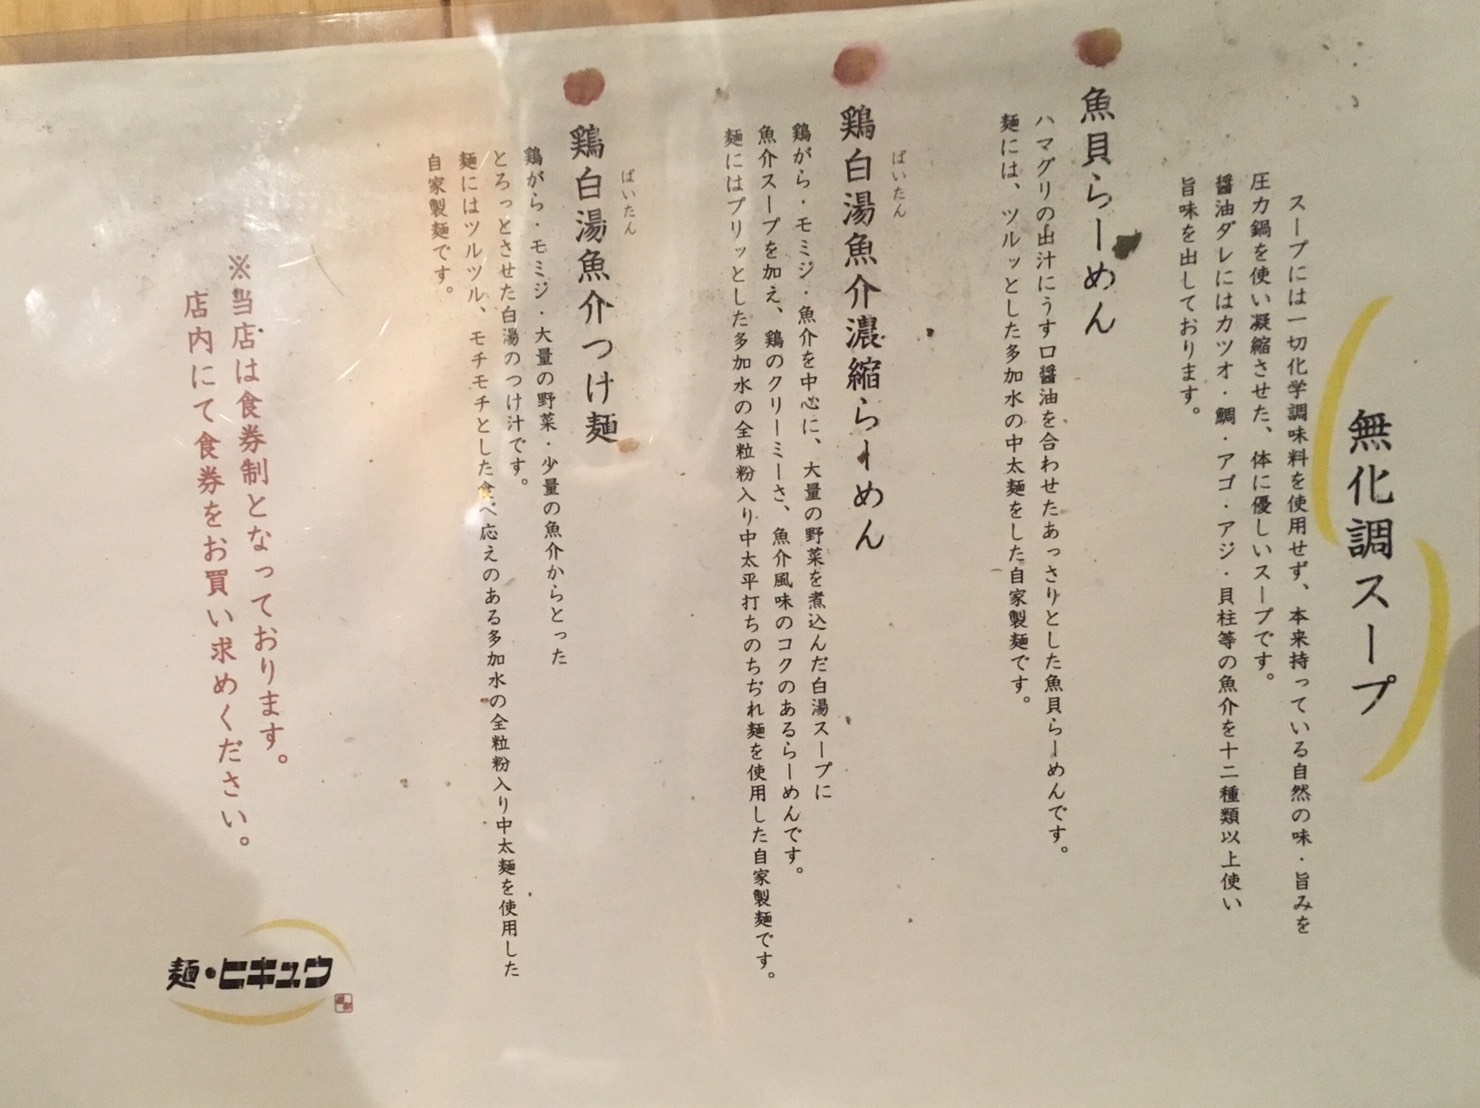 無化調スープ
スープには一切化学調味料を使用せず、本来持っている自然の味・旨みを
圧力鍋を使い凝縮させた、体に優しいスープです。
醤油ダレにはカツオ・鯛・アゴ・アジ・貝柱等の魚介を十二種類以上使い
旨味を出しております。
魚貝らーめん
ハマグリの出汁にうす口醤油を合わせたあっさりとした魚貝らーめんです。
麺には、ツルッとした多加水の中太麺をした自家製麺です。
ぱいたん
鶏白湯魚介濃縮らーめん
鶏がら・モミジ・魚介を中心に、大量の野菜を煮込んだ白湯スープに
魚介スープを加え、鶏のクリーミーさ、魚介風味のコクのあるらーめんです。
麺にはプリッとした多加水の全粒粉入り中太平打ちのちぢれ麺を使用した自家製麺です。
ぱいたん
鶏白湯魚介つけ麺
鶏がら・モミジ・大量の野菜・少量の魚介からとった
とろっとさせた白湯のつけ汁です。
麺にはツルツル、モチモチとした食べ応えのある多加水の全粒粉入り中太麺を使用した
自家製麺です。
※当店は食券制となっております。
店内にて食券をお買い求めください。
麺・ヒキュウ